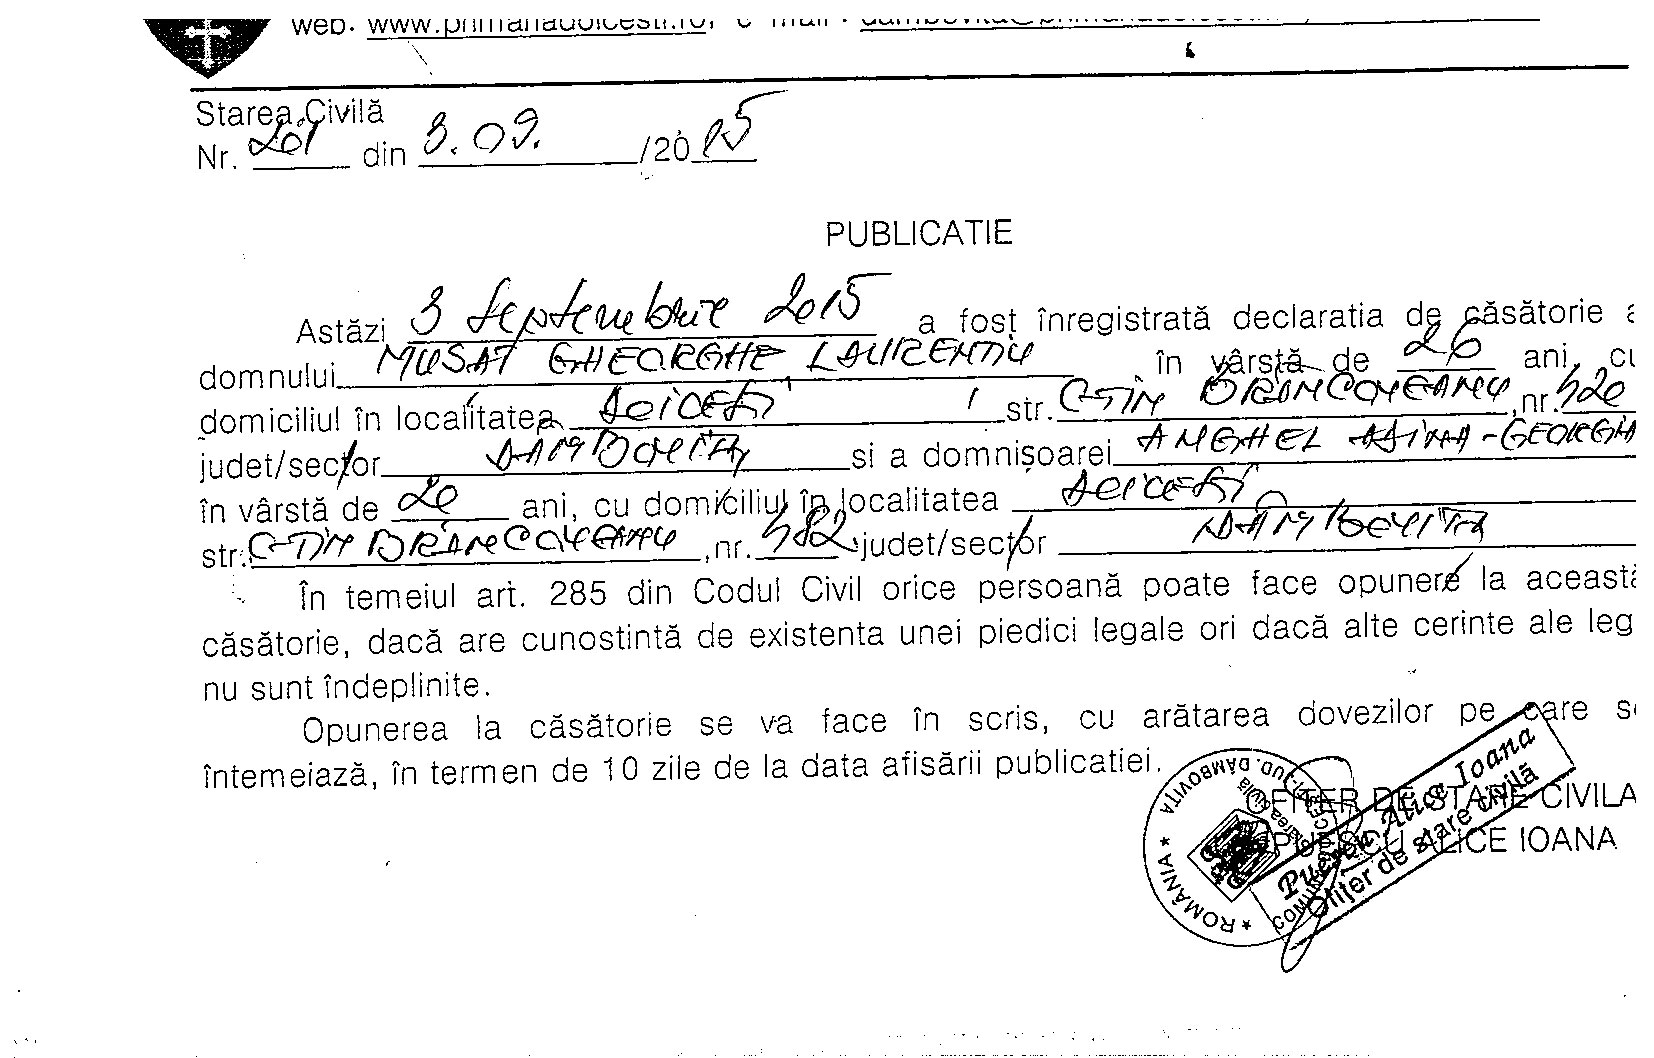 web. www.primariadoicesti.ro, e-mail:
Starea Civilă
Nr. 201 din 3.09. /2015
PUBLICATIE
Astăzi 3 Septembrie 2015 a fost înregistrată declaratia de căsătorie a
domnului MUSAT GHEORGHE LAURENTIU în vârstă de 26 ani, cu
domiciliul în localitatea DOICESTI str. C-TIN BRANCOVEANU, nr.
judet/sector DAMBOVITA si a domnișoarei ANGHEL -GEORGI
în vârstă de 20 ani, cu domiciliul în localitatea DOICESTI
str. C-TIN BRÂNCOVEANU, nr. 382 judet/sector DAMBOVITA
În temeiul art. 285 din Codul Civil orice persoană poate face opunere la această
căsătorie, dacă are cunostintă de existenta unei piedici legale ori dacă alte cerinte ale leg
nu sunt îndeplinite.
Opunerea la căsătorie se va face în scris, cu arătarea dovezilor pe care se
întemeiază, în termen de 10 zile de la data afisării publicatiei.
OFITER DE STARE CIVILA
ALICE IOANA
Alice Ioana
Ofițer de stare civilă
* ROMÂNIA * JUD. DAMBOVIȚA